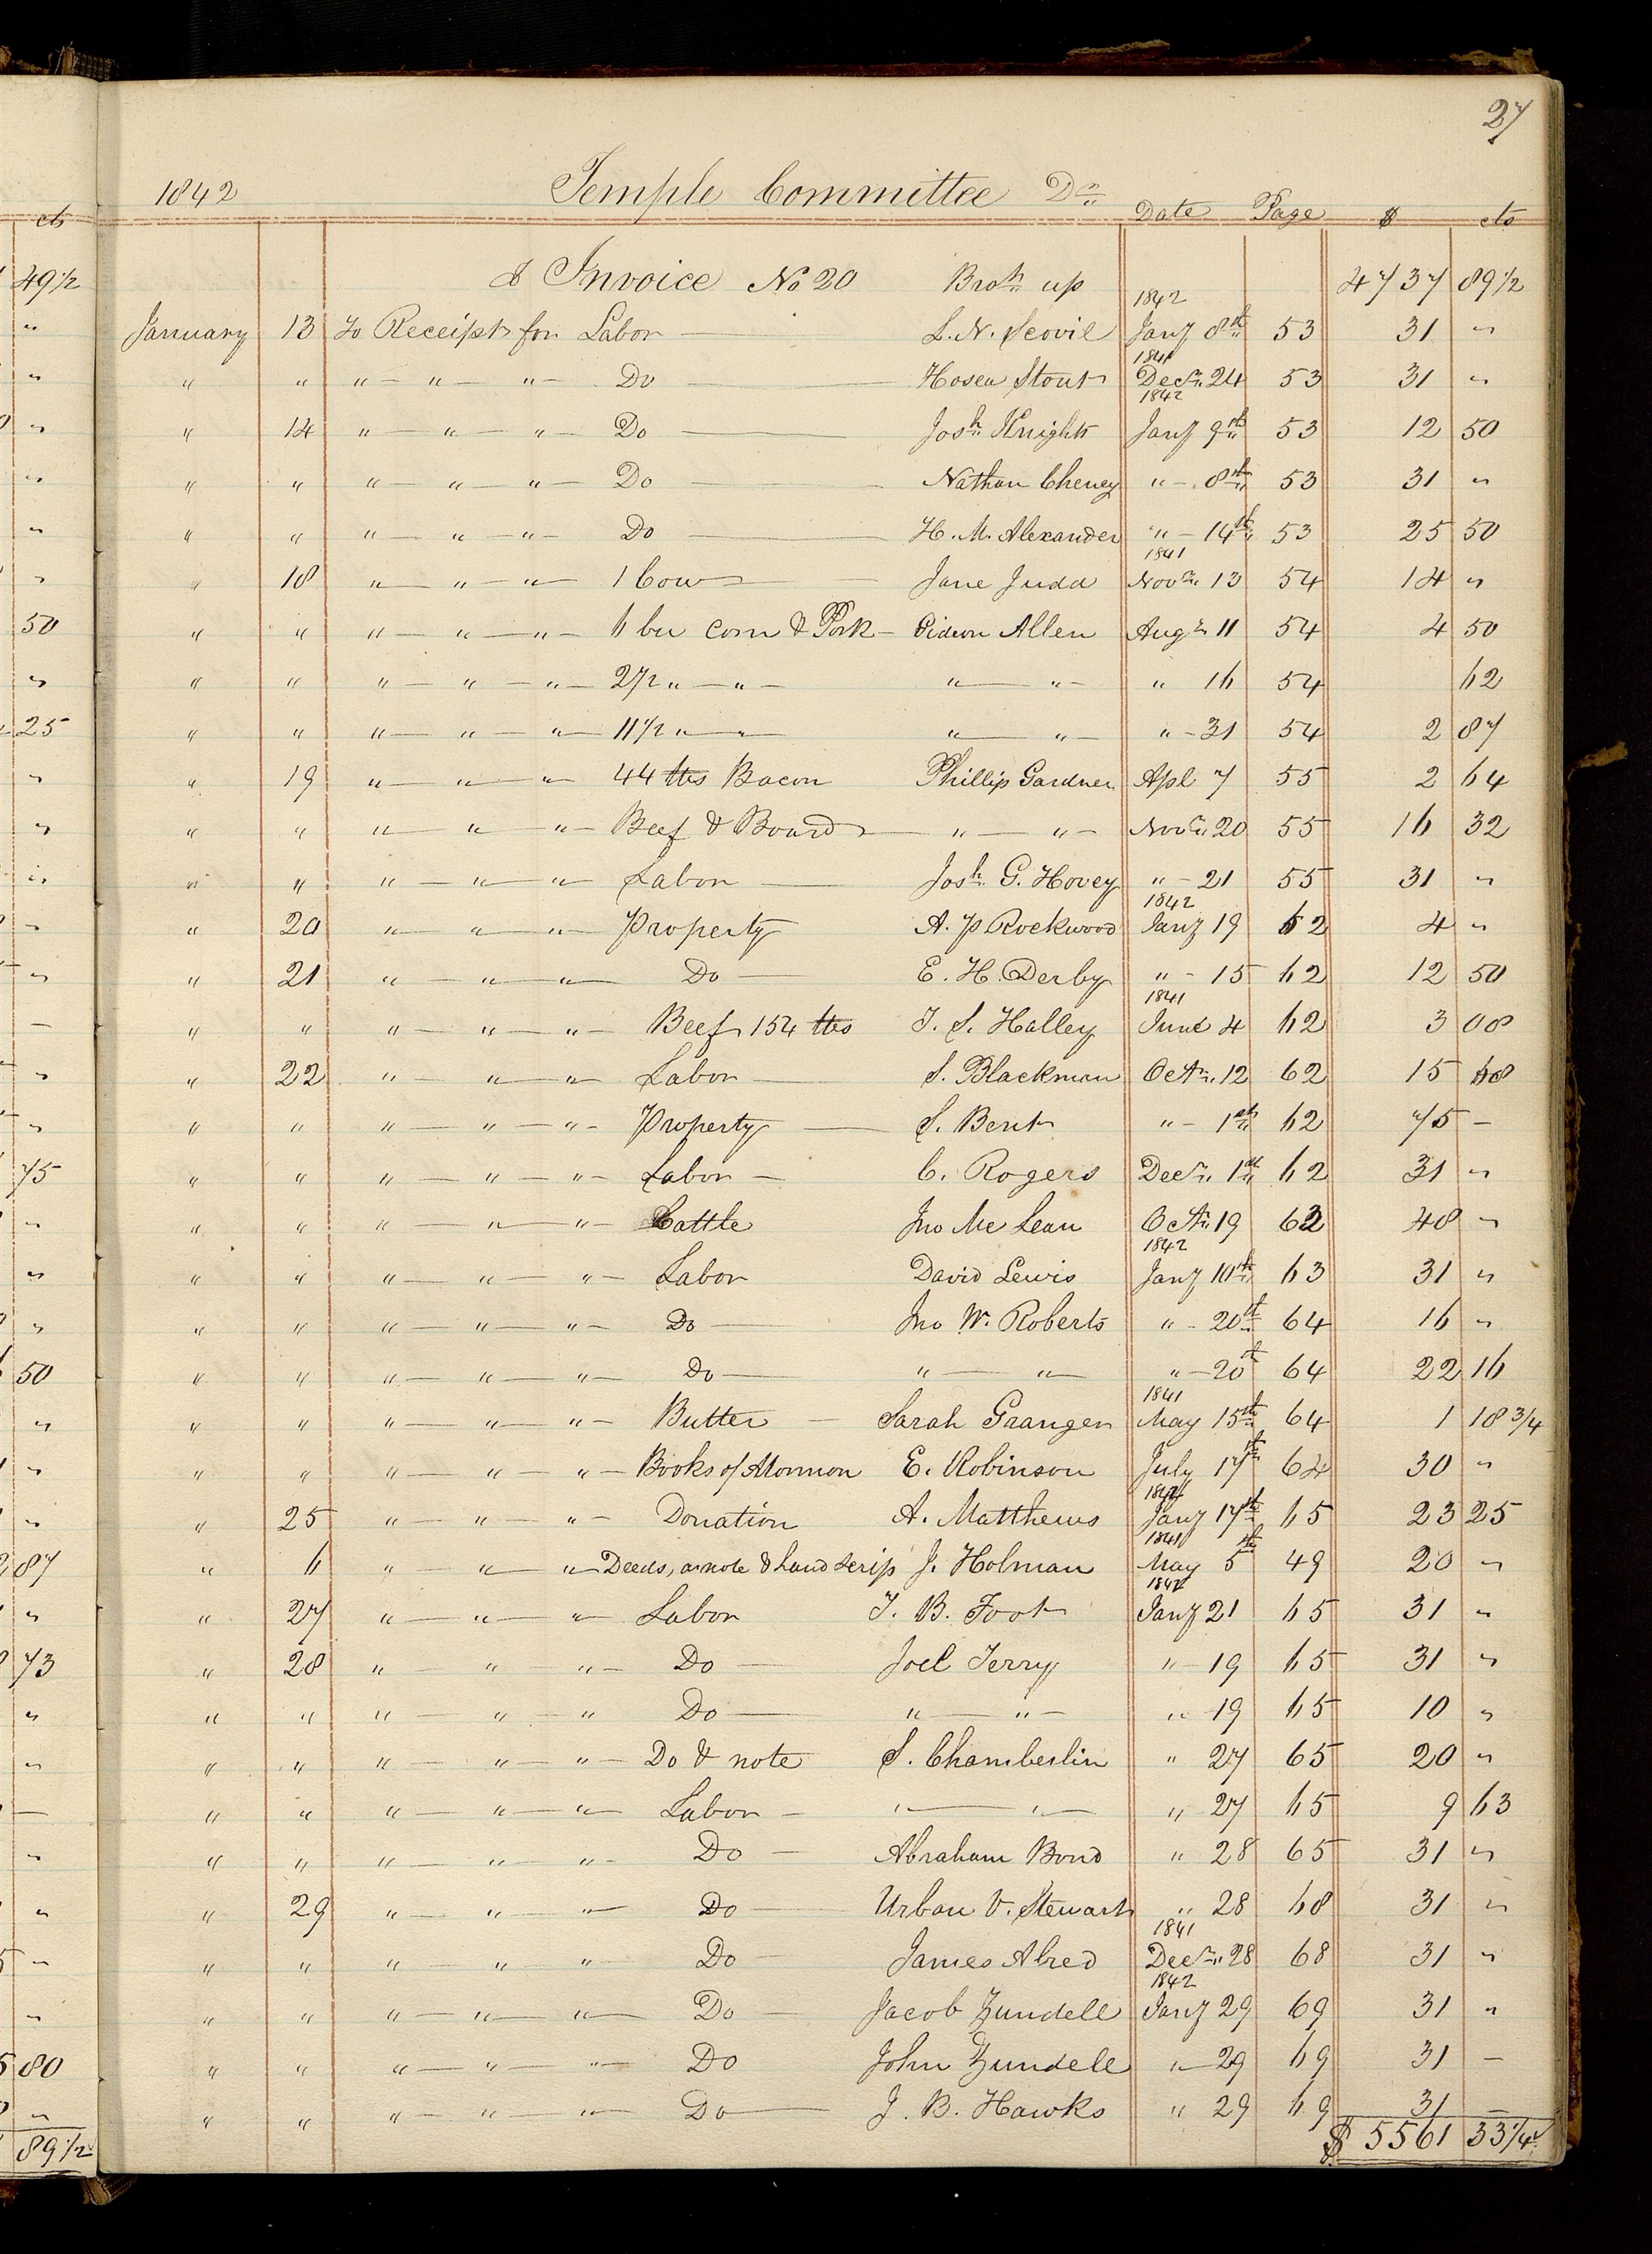 27
1842 Temple Committee Dr Date Page $ cts
& Invoice No 20 Brot up 4737 89 1/2
1842
January 13 To Receipts for Labor — L. N. Scovil Jany 8th 53 31 "
1841
" " " — " — " — Do — Hosea Stout Decr 24 53 31 "
1842
" 14 " — " — " — Do — Josh Knight Jany 9th 53 12 50
" " " — " — " — Do — Nathan Cheney " — 8th 53 31 "
" " " — " — " — Do — H. M. Alexander " — 14th 53 25 50
1841
" 18 " — " — " 1 Cow — Jane Judd Novr 13 54 14 "
" " " — " — " — 6 bu Corn & Pork — Gideon Allen Augt 11 54 4 50
" " " — " — " — 2 1/2 " — " — " — " — " 16 54 62
" " " — " — " — 11 1/2 " — " " — " — " — 31 54 2 87
" 19 " — " — " 44 lbs Bacon Phillip Gardner Apl 7 55 2 64
" " " — " — " — Beef & Board — " — " — Novr 20 55 16 32
" " " — " — " Labor — Josh G. Hovey " — 21 55 31 "
1842
" 20 " — " — " Property A. P. Rockwood Jany 19 62 4 "
" 21 " — " — " — Do — E. H. Derby " — 15 62 12 50
1841
" " " — " — " — Beef 154 lbs J. S. Halley June 4 62 3 08
" 22 " — " — " Labor — S. Blackman Octr 12 62 15 68
" " " — " — " — Property — S. Bent " — 1st 62 75 —
" " " — " — " — Labor — C. Rogers Decr 1st 62 31 "
" " " — " — " — Cattle Jno Mc Lean Octr 19 62 48 "
1842
" " " — " — " — Labor David Lewis Jany 10th 63 31 "
" " " — " — " — Do — Jno W. Roberts " — 20th 64 16 "
" " " — " — " — Do — " — " " — 20th 64 22 16
1841
" " " — " — " — Butter — Sarah Graanger May 15th 64 1 18 3/4
" " " — " — " — Books of Mormon E. Robinson July 17th 64 30 "
1842
" 25 " — " — " — Donation A. Matthews Jany 17th 65 23 25
1841
" 6 " — " — " — Deeds, a note & hand scrip J. Holman May 5th 49 20 "
1842
" 27 " — " — " — Labor J. B. Foot Jany 21 65 31 "
" 28 " — " — " — Do — Joel Terry " — 19 65 31 "
" " " — " — " Do — " — " — " 19 65 10 "
" " " — " — " — Do & note S. Chamberlin " 27 65 20 "
" " " — " — " — Labor — " — " " 27 65 9 63
" " " — " — " — Do — Abraham Bond " 28 65 31 "
" 29 " — " — " — Do — Urban V. Stewart " 28 68 31 "
1841
" " " — " — " — Do — James Alred Decr 28 68 31 "
1842
" " " — " — " — Do — Jacob Zundell Jany 29 69 31 "
" " " — " — " — Do John Zundell " — 29 69 31 —
" " " — " — " — Do — J. B. Hawks " 29 69 31 —
$ 5561 33 1/4
cts
49 1/2
50
25
75
50
87
73
80
89 1/2